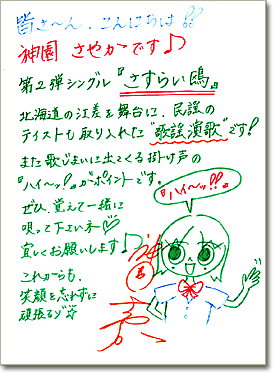 皆さ〜ん、こんにちは!!
神園 さやかです♪
第2弾シングル『さすらい鴎』
北海道の江差を舞台に、民謡の
テイストも取り入れた"歌謡演歌"です!
また歌じまいに出てくる掛け声の
『ハイ〜ッ!』がポイントです。
『ハイ〜ッ!!』
ぜひ、覚えて一緒に
唄って下さいネ♡
宜しくお願いします♪
これからも、
笑顔を忘れずに
頑張るゾ